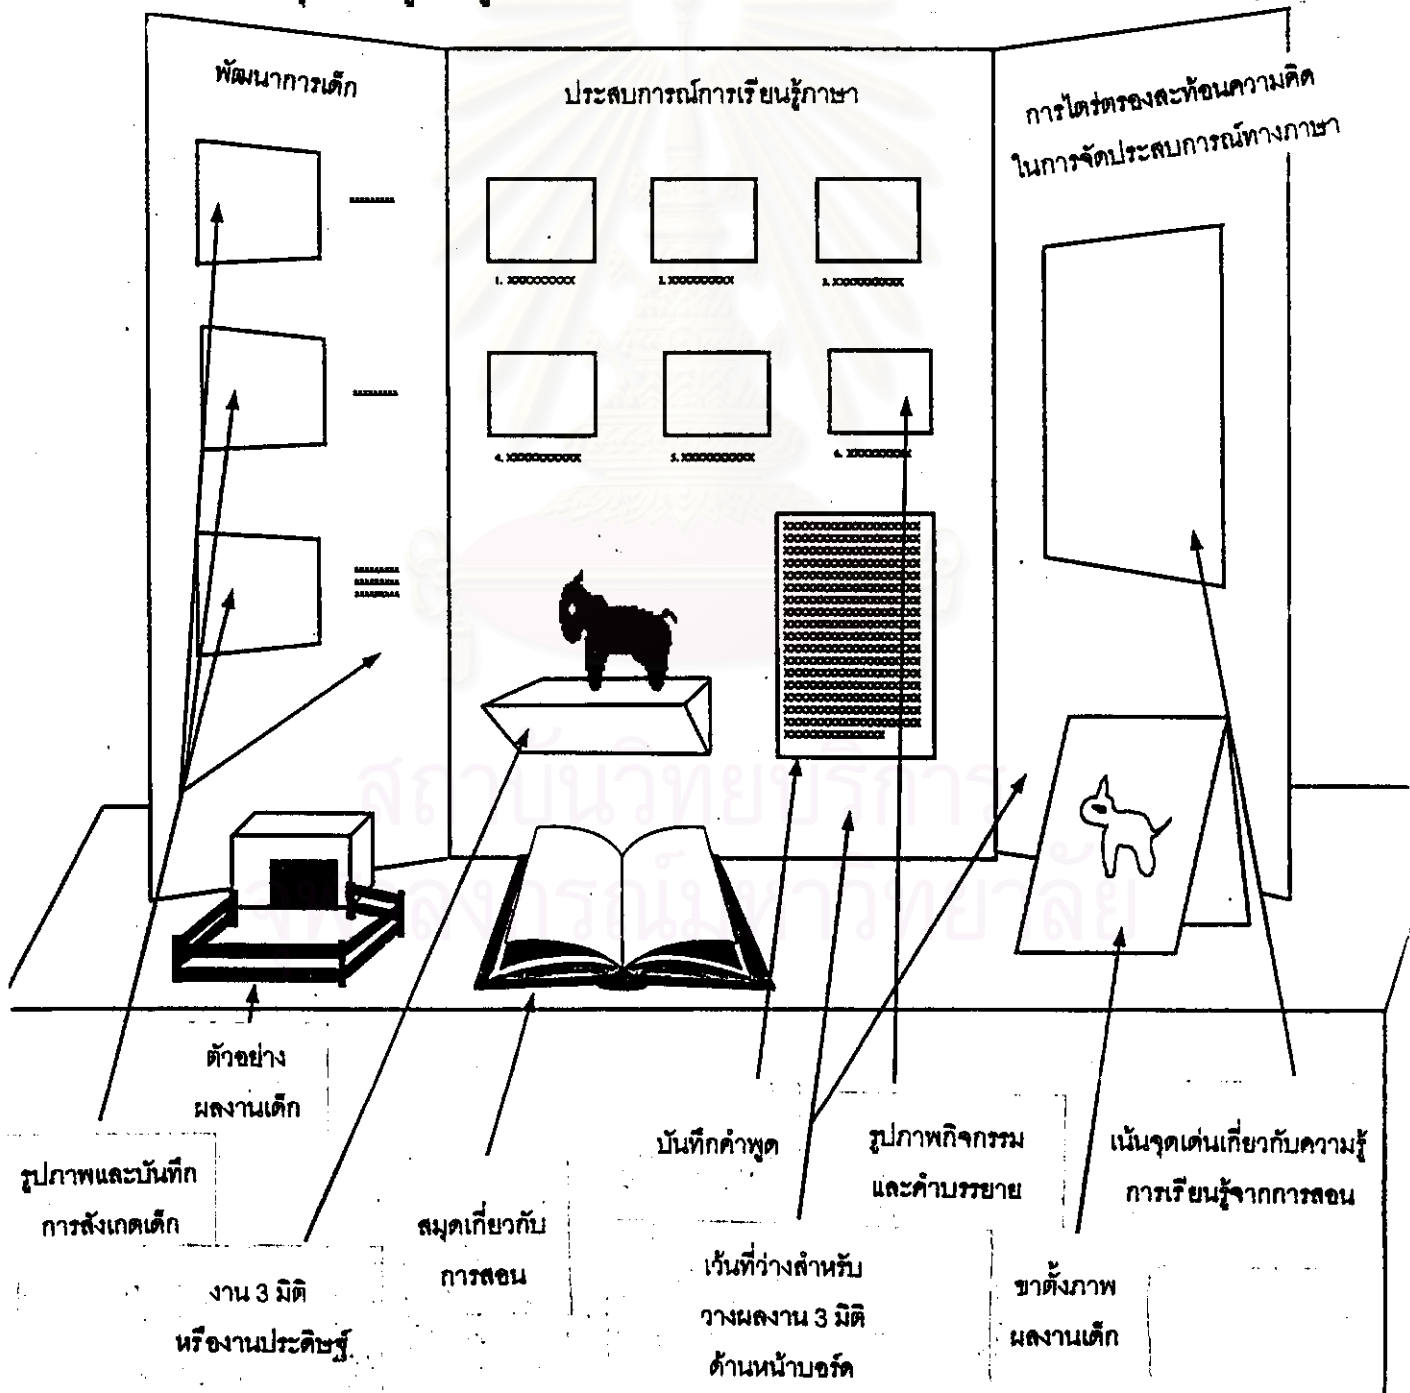 พัฒนาการเด็ก
ประสบการณ์การเรียนรู้ภาษา
การไตร่ตรองสะท้อนความคิด
ในการจัดประสบการณ์ทางภาษา
xxxxxxxxx
1. XXXXXXXXXX
2. XXXXXXXXXX
3. XXXXXXXXXX
xxxxxxxxx
4. XXXXXXXXXX
5. XXXXXXXXXX
6. XXXXXXXXX
สถาบันวิทยบริการ
จุฬาลงกรณ์มหาวิทยาลัย
ตัวอย่าง
ผลงานเด็ก
รูปภาพและบันทึก
การสังเกตเด็ก
งาน 3 มิติ
หรืองานประดิษฐ์
สมุดเกี่ยวกับ
การสอน
บันทึกคำพูด
เว้นที่ว่างสำหรับ
วางผลงาน 3 มิติ
ด้านหน้าบอร์ด
รูปภาพกิจกรรม
และคำบรรยาย
ขาตั้งภาพ
ผลงานเด็ก
เน้นจุดเด่นเกี่ยวกับความรู้
การเรียนรู้จากการสอน